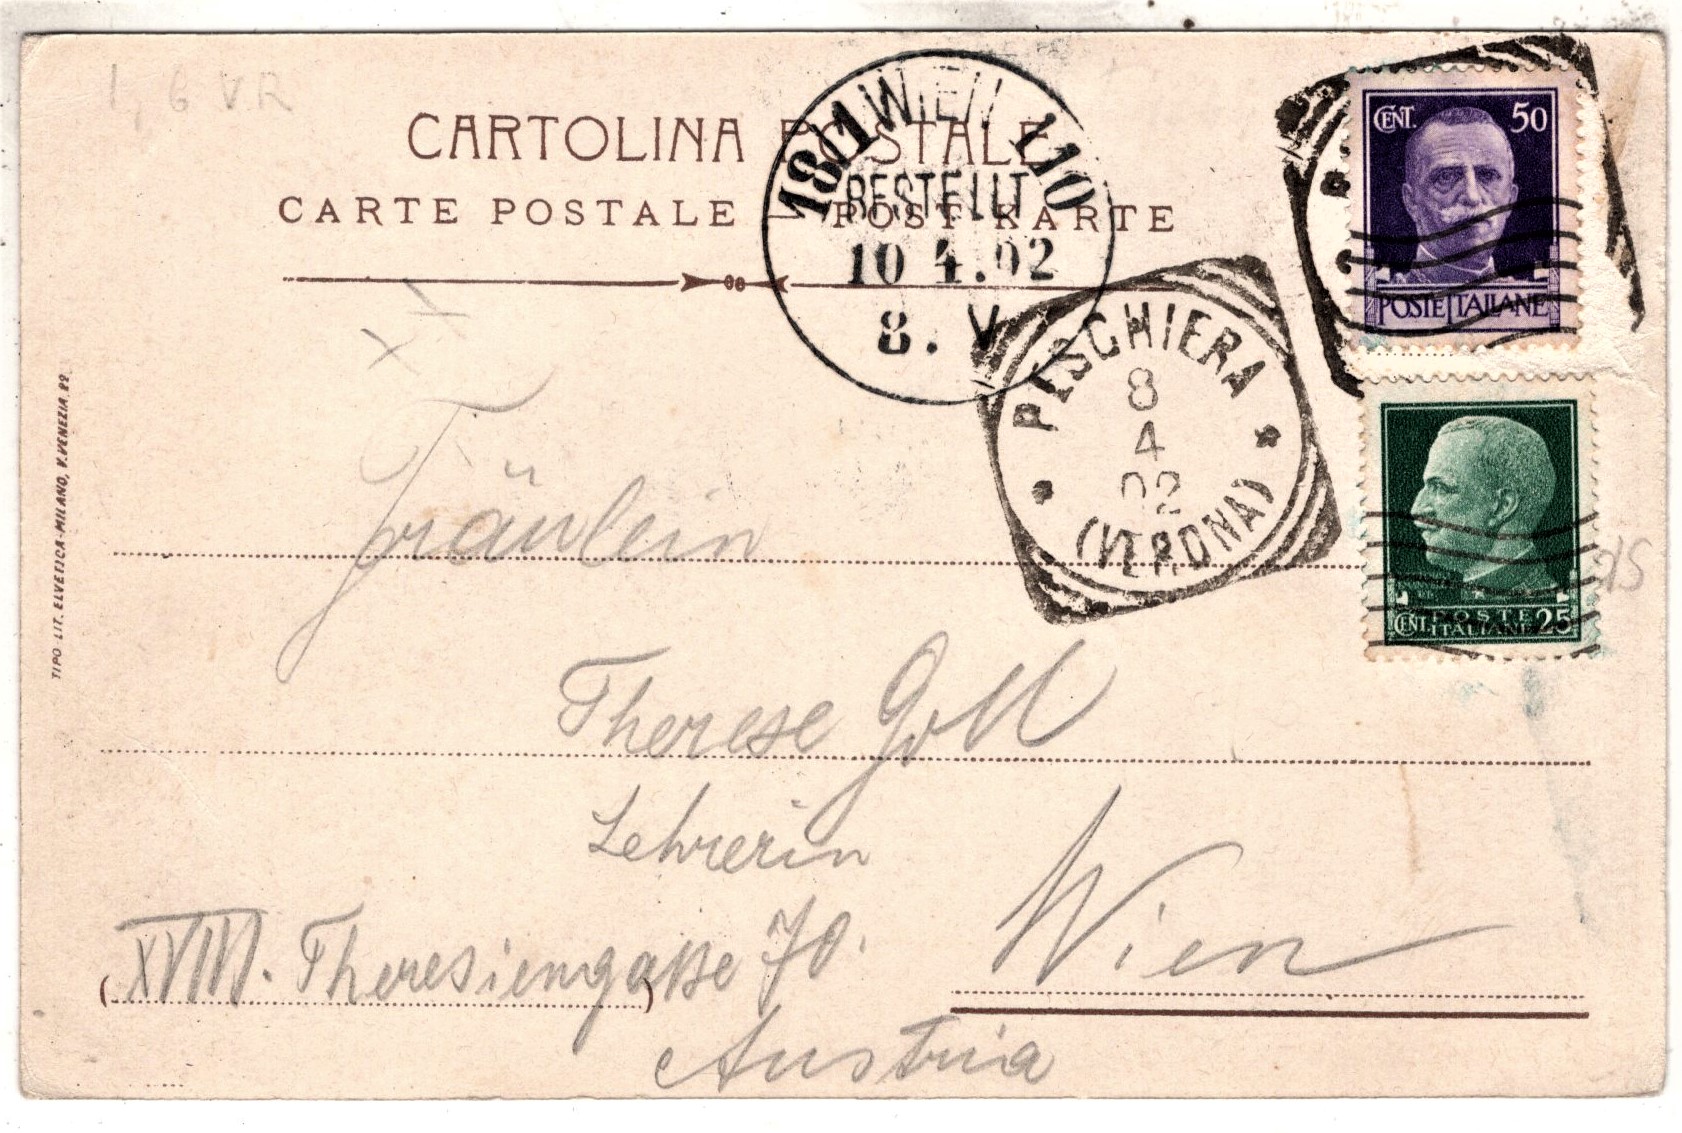 1, 6 VR
CARTOLINA POSTALE
CARTE POSTALE - POST-KARTE
18/1 WIEN 110
BESTELLT
10 4.02
8. V
PESCHIERA
8
4
02
(VERONA)
CENT. 50
POSTE ITALIANE
POSTE
CENT. ITALIANE 25
TIPO-LIT. ELVETICA-MILANO, V. VENEZIA 22
Fräulein
Therese Goll
Lehrerin
Wien
(XVIII. Theresiengasse 70.)
Austria